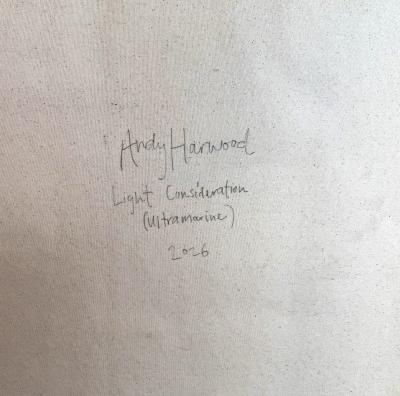 Andy Harwood
Light Consideration
(Ultramarine)
2026